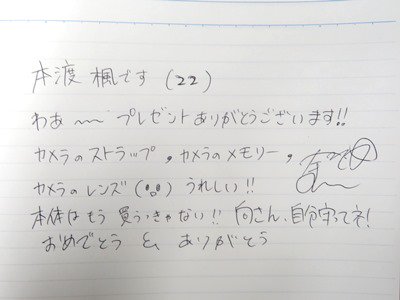 本渡 楓です (22)
わあ〜 プレゼントありがとうございます!!
カメラのストラップ, カメラのメモリー,
カメラのレンズ うれしい!!
本体はもう買うっきゃない!! 向さん、自分守ってネ!
おめでとう と、ありがとう